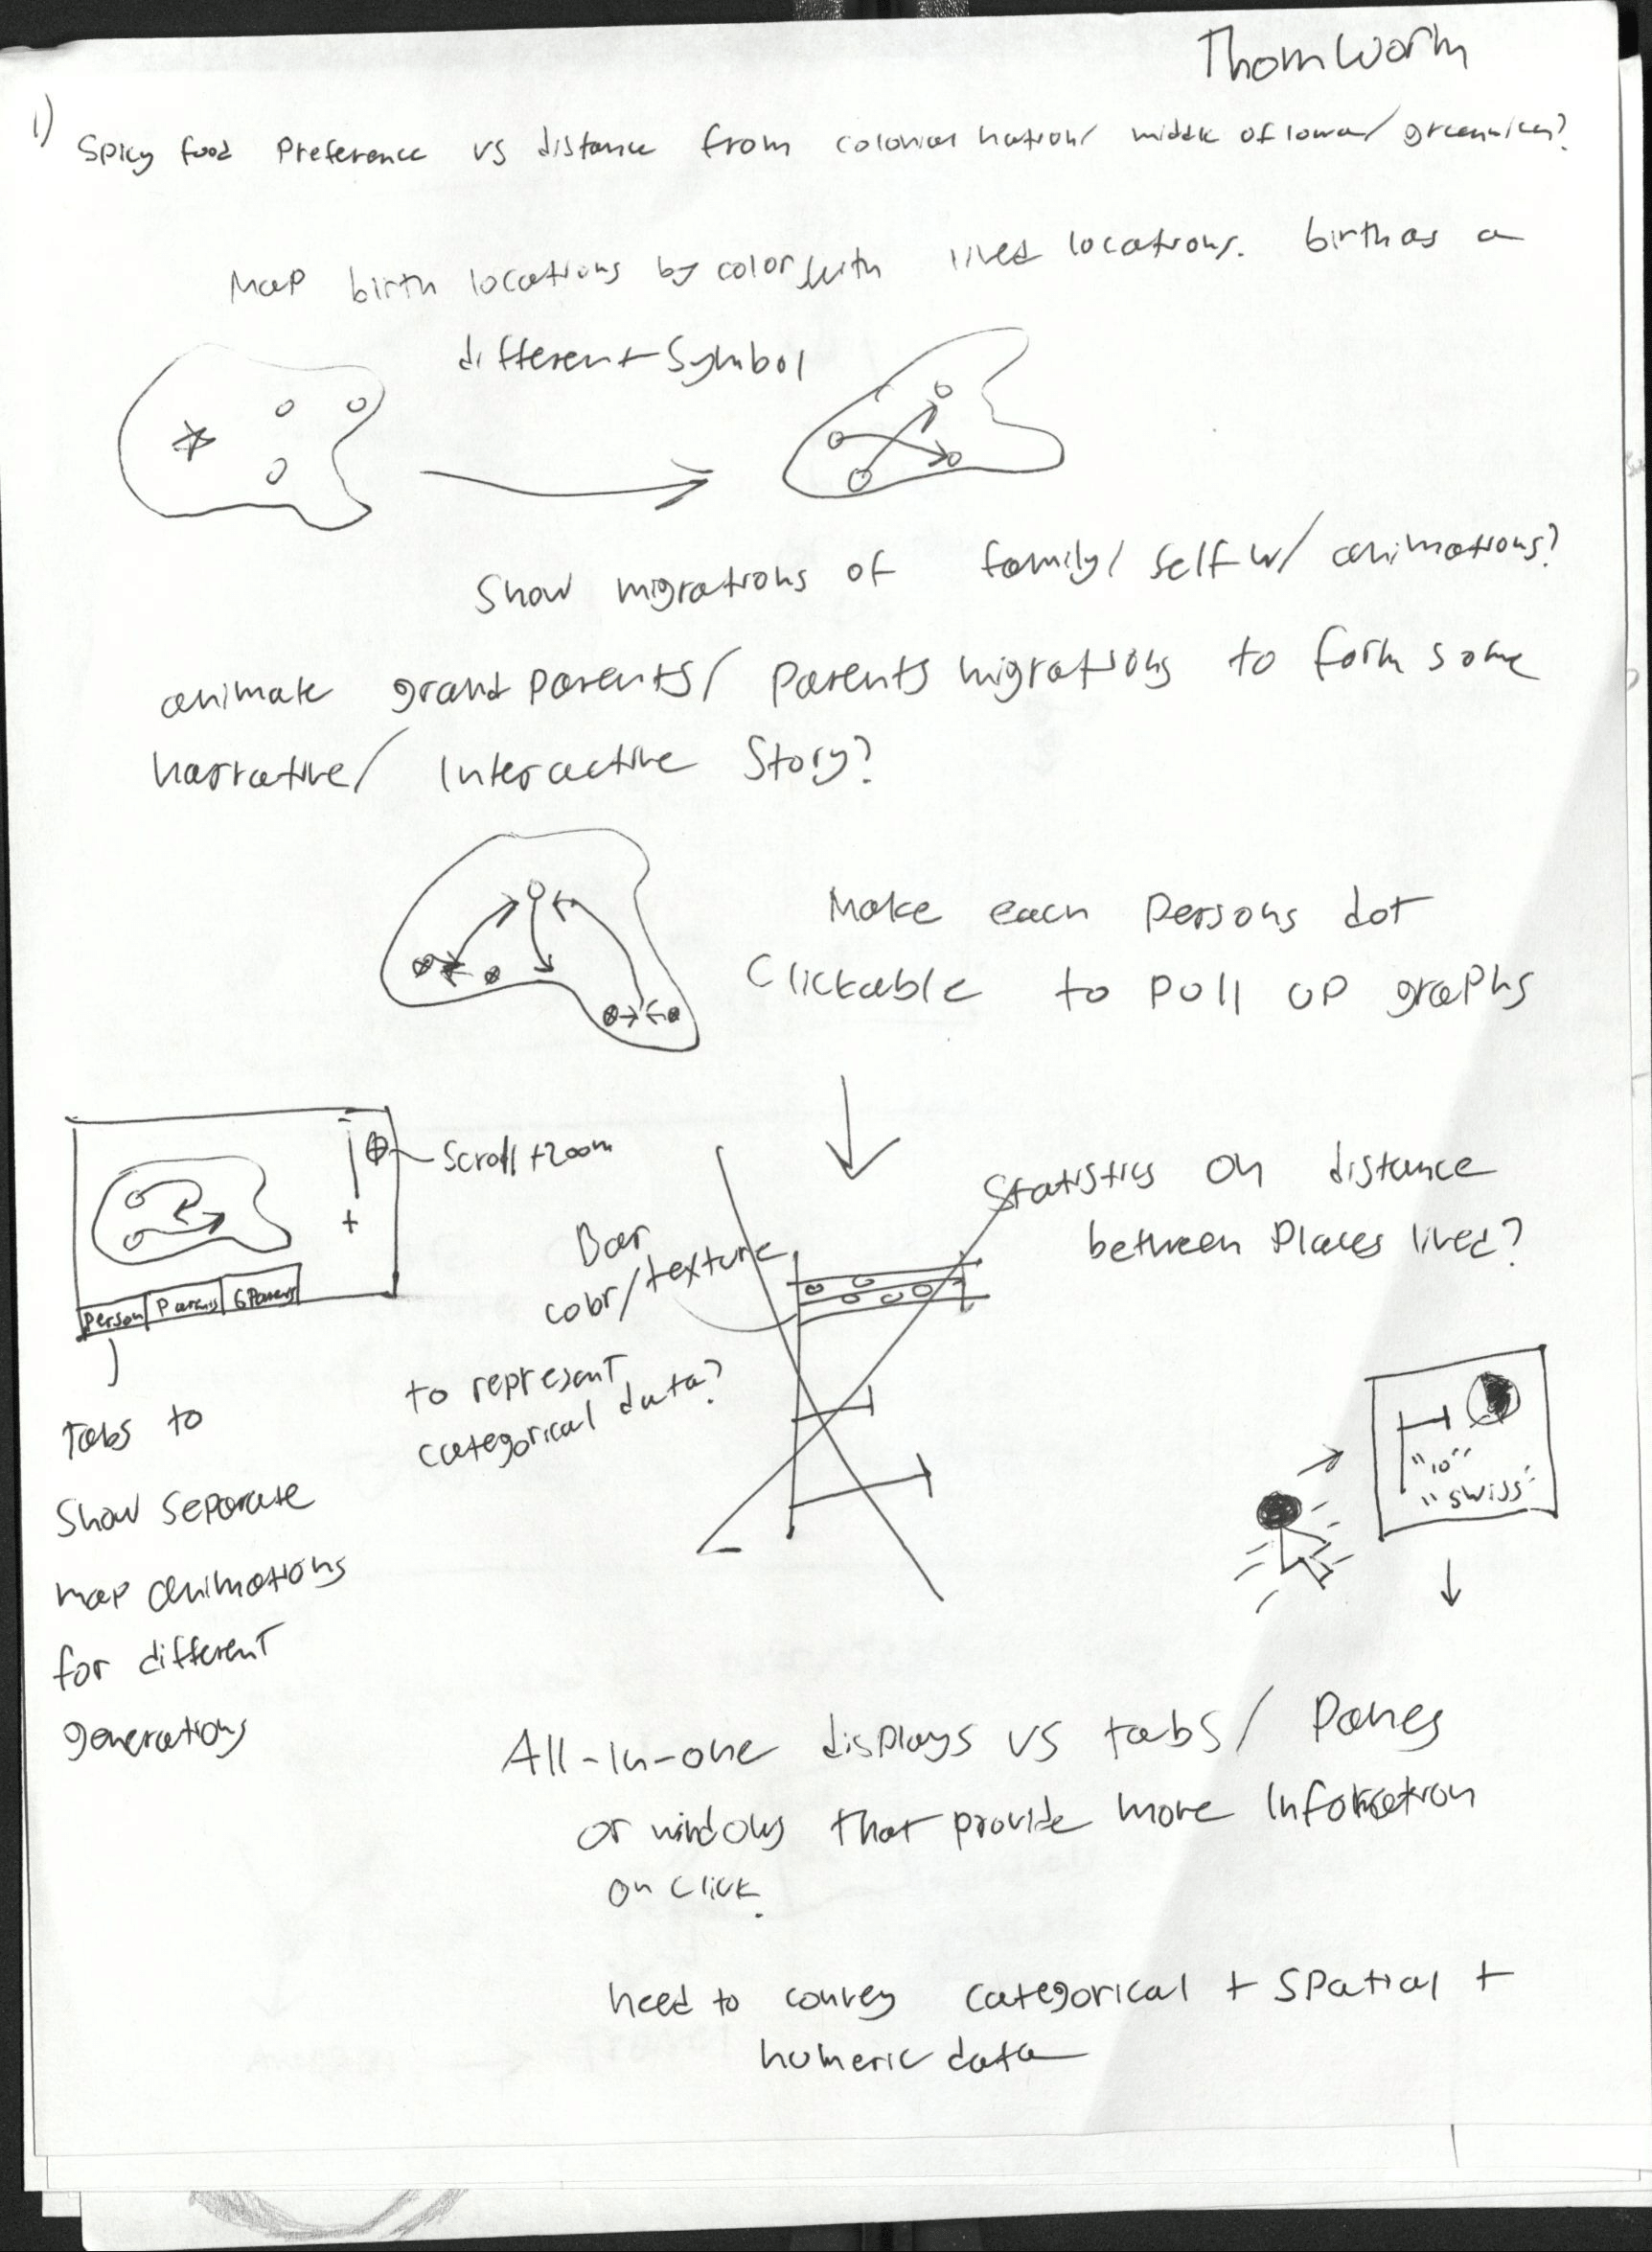 Thom Worm
1) Spicy food Preference vs distance from colonial nation/ middle of Iowa/ greenwich?
Map birth locations by color with lived locations. birth as a
different symbol
Show migrations of family/ self w/ animations?
animate grandparents/ parents migrations to form some
narrative/ Interactive Story?
Make each persons dot
Clickable to pull up graphs
Scroll + zoom
+
Person Parents GParents
Tabs to
Show separate
map animations
for different
generations
Bar
color/texture
to represent
categorical data?
Statistics on distance
between Places lived?
"10"
"swiss"
All-in-one displays vs tabs/ Panes
or windows that provide more Information
on click.
need to convey categorical + spatial +
numeric data